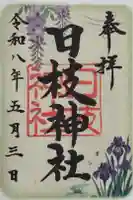 奉拝
日枝神社
令和八年五月三日